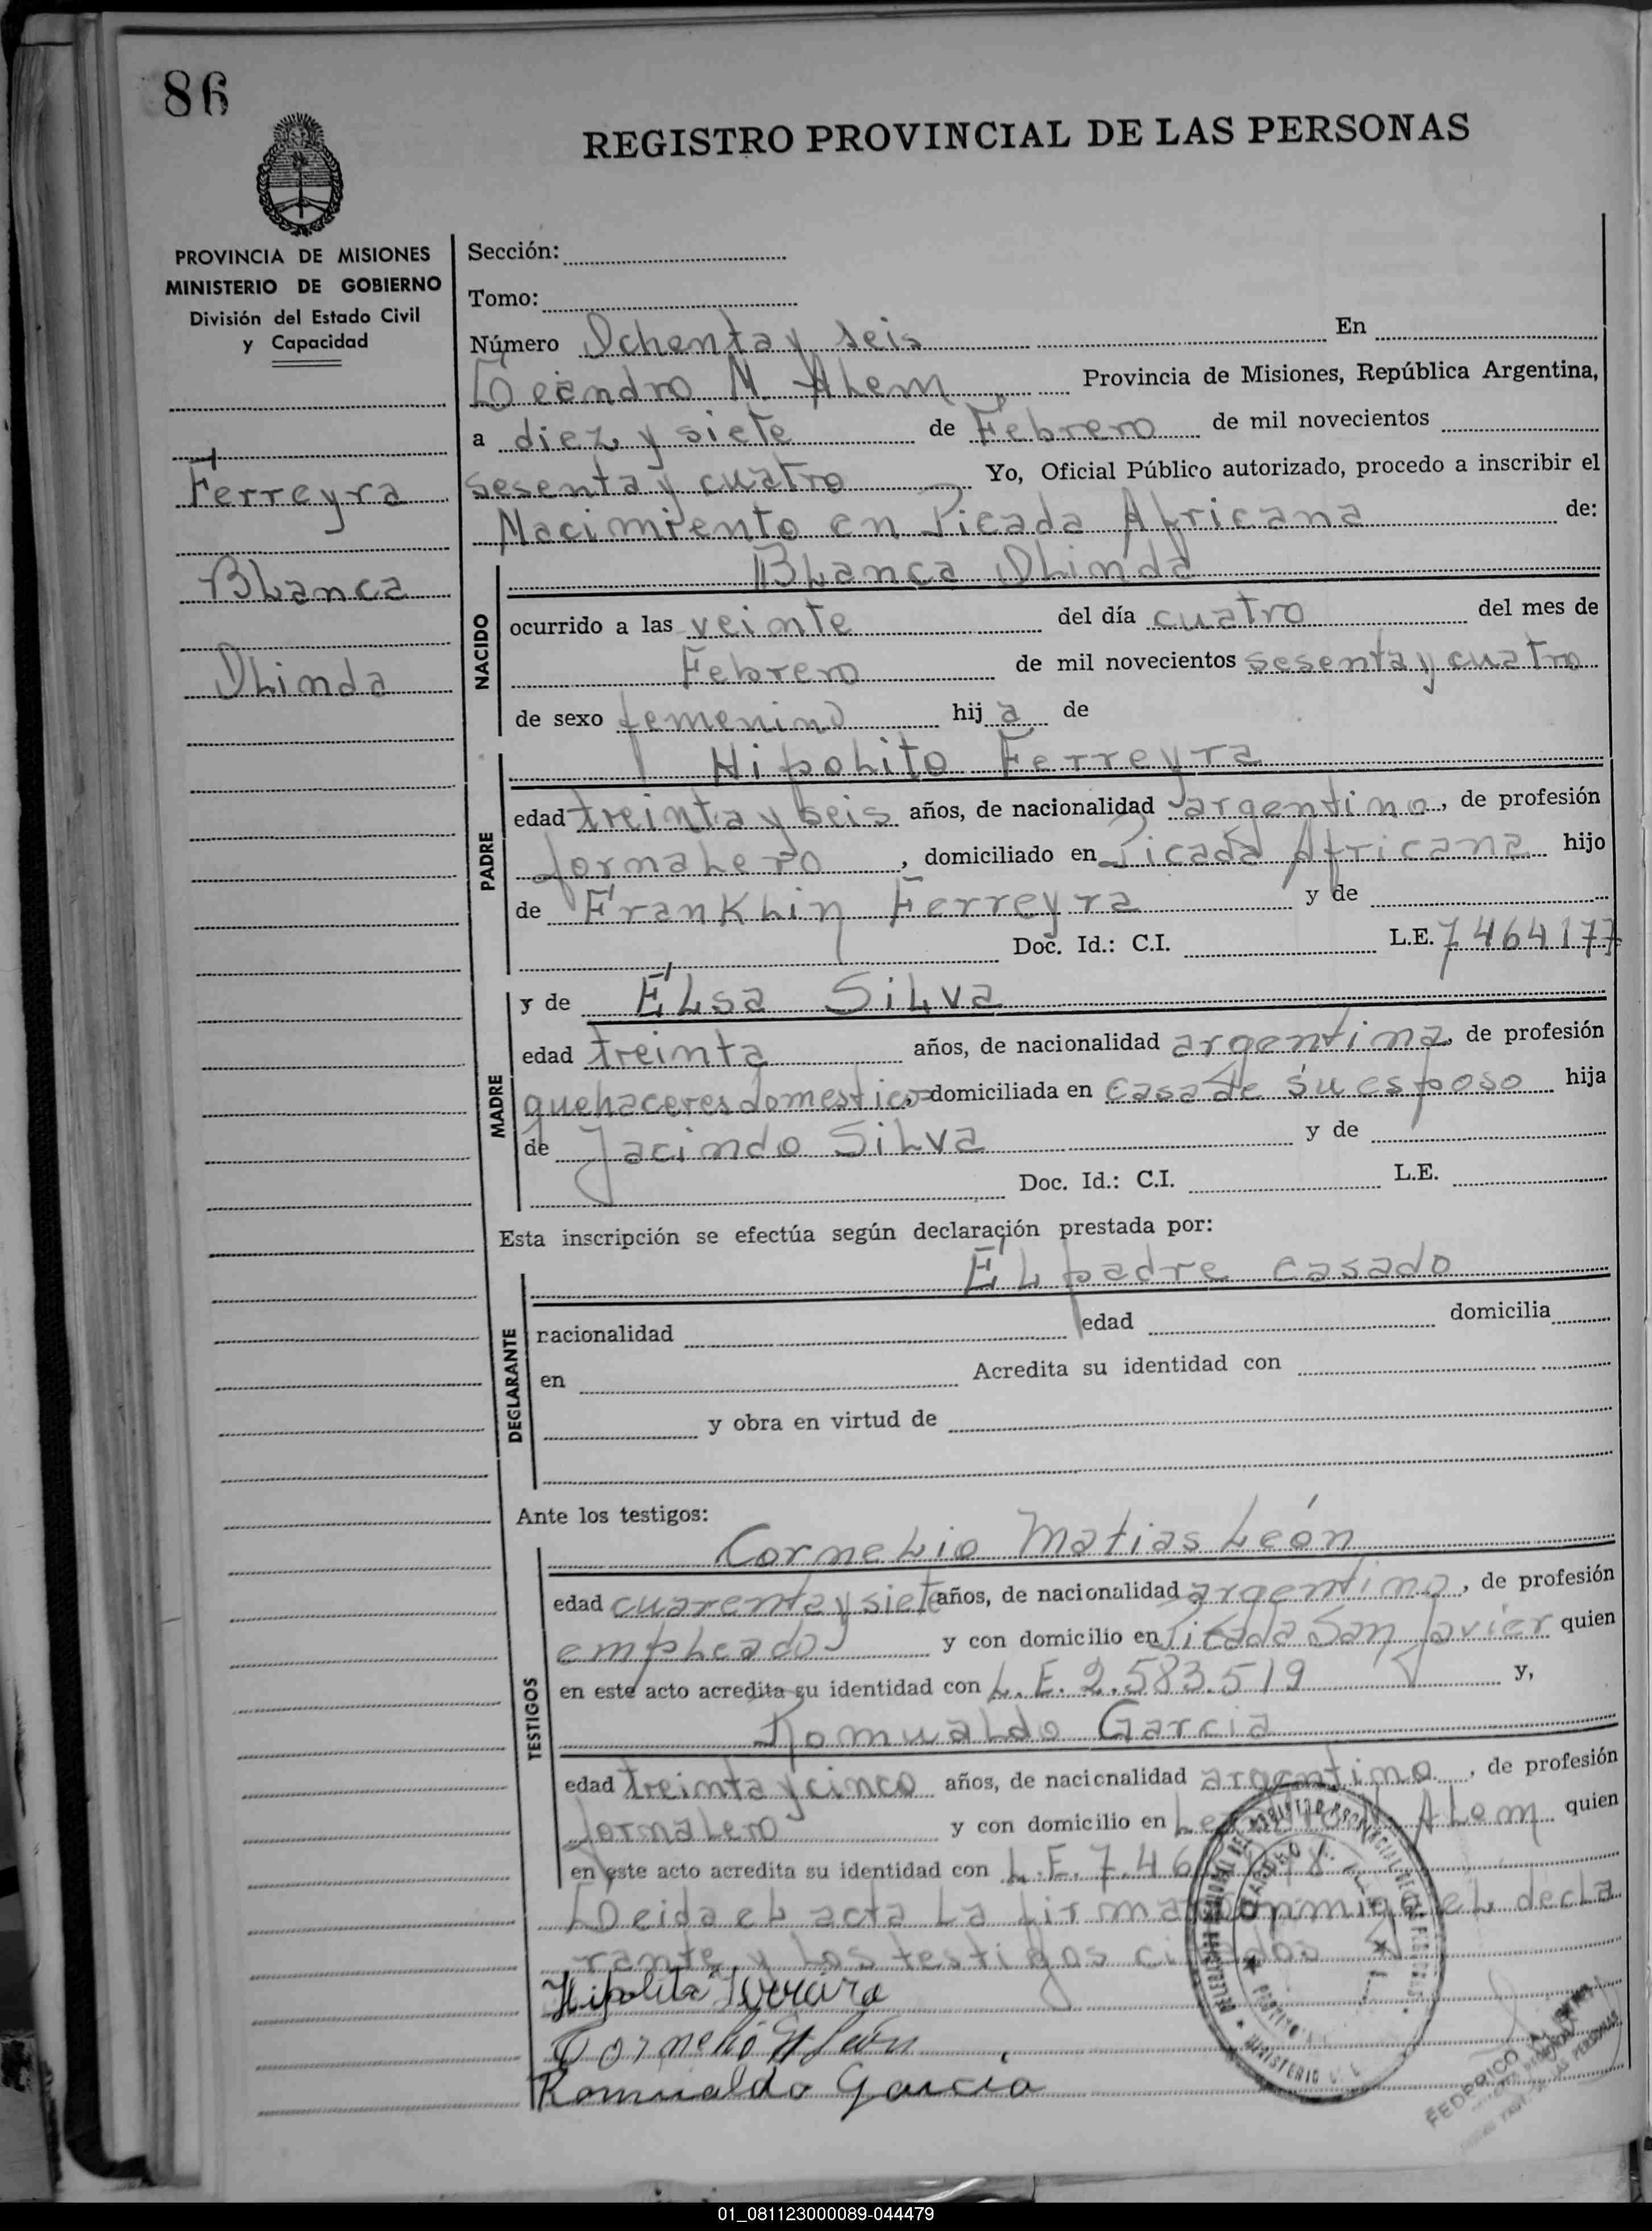 86
REGISTRO PROVINCIAL DE LAS PERSONAS
PROVINCIA DE MISIONES
MINISTERIO DE GOBIERNO
División del Estado Civil
y Capacidad
Ferreyra
Blanca
Olinda
Sección:
Tomo:
Número Ochenta y seis En
Leandro N. Alem Provincia de Misiones, República Argentina,
a diez y siete de Febrero de mil novecientos
sesenta y cuatro Yo, Oficial Público autorizado, procedo a inscribir el
Nacimiento en Picada Africana de:
Blanca Olinda
NACIDO
ocurrido a las veinte del día cuatro del mes de
Febrero de mil novecientos sesenta y cuatro
de sexo femenino hij a de
Hipolito Ferreyra
PADRE
edad treinta y seis años, de nacionalidad argentino, de profesión
Jornalero, domiciliado en Picada Africana hijo
de Franklin Ferreyra y de
Doc. Id.: C.I. L.E. 7464177
MADRE
y de Elsa Silva
edad treinta años, de nacionalidad argentina, de profesión
quehaceres domesticos, domiciliada en casa de su esposo hija
de Jacindo Silva y de
Doc. Id.: C.I. L.E.
Esta inscripción se efectúa según declaración prestada por:
El padre casado
DECLARANTE
nacionalidad edad domicilia
en Acredita su identidad con
y obra en virtud de
Ante los testigos:
Cornelio Matias León
TESTIGOS
edad cuarenta y siete años, de nacionalidad argentino, de profesión
empleado y con domicilio en Picada San Javier quien
en este acto acredita su identidad con L.E. 2.583.519 y,
Romualdo Garcia
edad treinta y cinco años, de nacionalidad argentino, de profesión
Jornalero y con domicilio en Alem quien
en este acto acredita su identidad con L.E. 7.46
Leida el acta la firma conmigo el decla
rante y los testigos citados
Hipolito Ferreira
Cornelio M León
Romualdo Garcia
FEDERICO
01_081123000089-044479